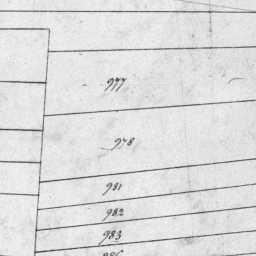 977
978
981
982
983